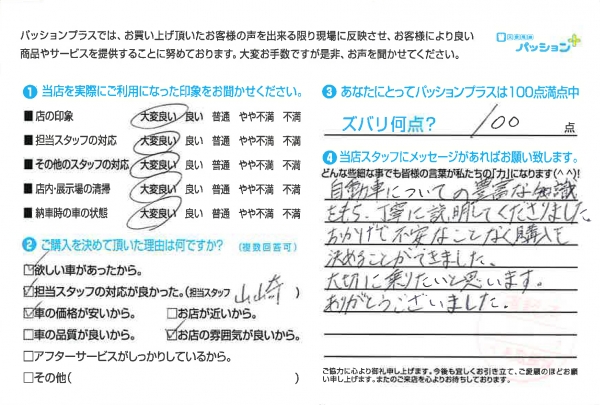 パッションプラスでは、お買い上げ頂いたお客様の声を出来る限り現場に反映させ、お客様により良い
商品やサービスを提供することに努めております。大変お手数ですが是非、お声を聞かせてください。
パッション
1 当店を実際にご利用になった印象をお聞かせください。
■店の印象 大変良い 良い 普通 やや不満 不満
■担当スタッフの対応 大変良い 良い 普通 やや不満 不満
■その他のスタッフの対応 大変良い 良い 普通 やや不満 不満
■店内・展示場の清掃 大変良い 良い 普通 やや不満 不満
■納車時の車の状態 大変良い 良い 普通 やや不満 不満
2 ご購入を決めて頂いた理由は何ですか? (複数回答可)
☑欲しい車があったから。
☑担当スタッフの対応が良かった。(担当スタッフ 山崎 )
☑車の価格が安いから。 □お店が近いから。
□車の品質が良いから。 ☑お店の雰囲気が良いから。
□アフターサービスがしっかりしているから。
□その他( )
3 あなたにとってパッションプラスは100点満点中
ズバリ何点? 100 点
4 当店スタッフにメッセージがあればお願い致します。
どんな些細な事でも皆様の言葉が私たちの「力」になります(^^)!
自動車についての豊富な知識
をもち、丁寧に説明してくださりました。
おかげで不安なことなく購入を
決めることができました。
大切に乗りたいと思います。
ありがとうございました。
ご協力に心より御礼申し上げます。今後も宜しくお引き立て、ご愛顧のほどお願
い申し上げます。またのご来店を心よりお待ちしております。